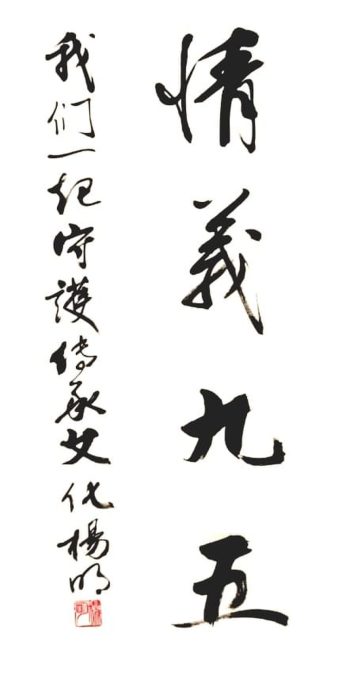 情義九五
我们一起守護传承文化楊明